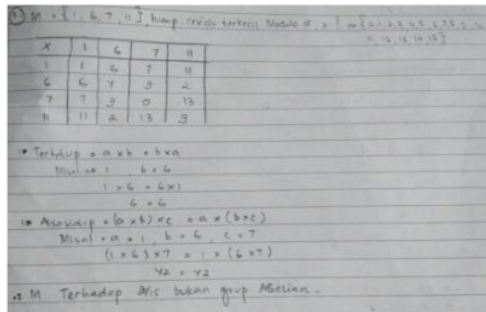 M = {1, 6, 7, 11}, himp. residu terkecil Modulo
x 1 6 7 11
1 1 6 7 11
6 6 4 9 2
7 7 9 0 13
11 11 2 13 9
Tertutup = a x b = b x a
Misal a = 1, b = 6
1 x 6 = 6 x 1
6 = 6
Asosiatip = (a x b) x c = a x (b x c)
Misal = a = 1, b = 6, c = 7
(1 x 6) x 7 = 1 x (6 x 7)
42 = 42
∴ M Terhadap bukan grup Abelian.